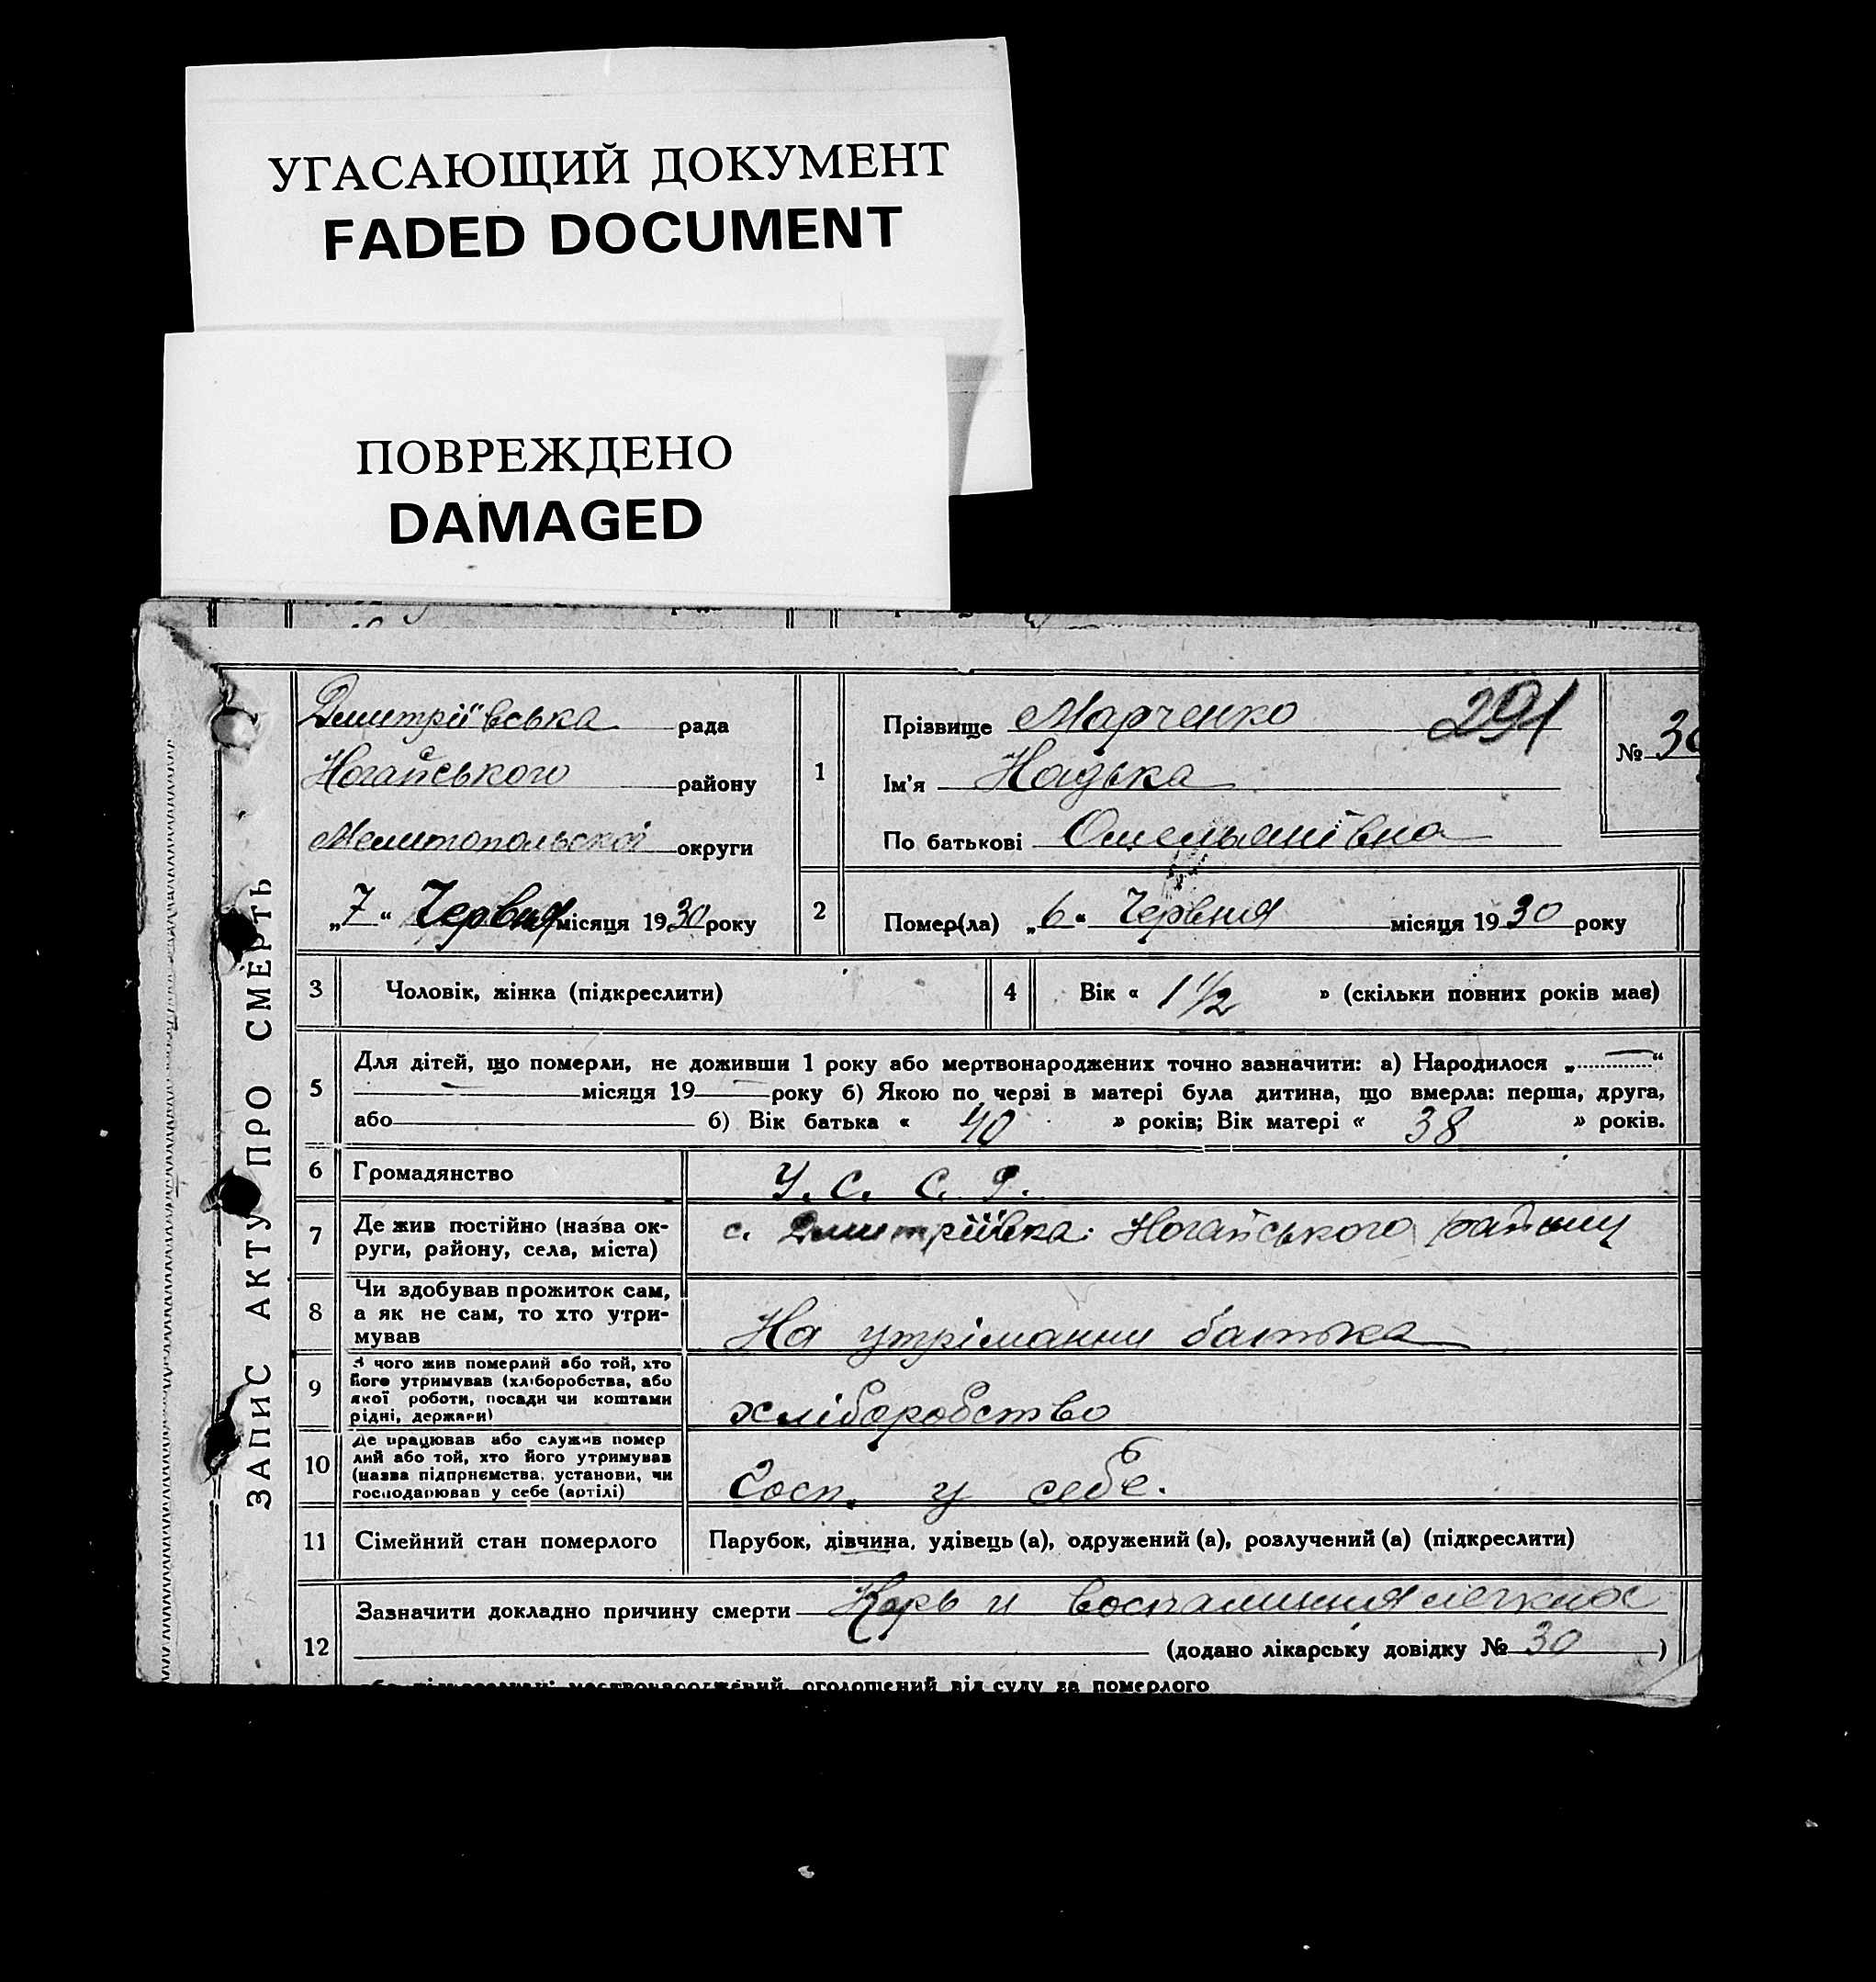 УГАСАЮЩИЙ ДОКУМЕНТ
FADED DOCUMENT
ПОВРЕЖДЕНО
DAMAGED
ЗАПИС АКТУ ПРО СМЕРТЬ
Дмитріївська рада
Ногайського району
Мелитопольскої округи
„7“ Червня місяця 1930 року
1
Прізвище Марченко 291
Ім'я Надька
По батькові Омельянівна
№ 30
2
Помер(ла) „6“ Червня місяця 1930 року
3 Чоловік, жінка (підкреслити)
4 Вік « 1 1/2 » (скільки повних років має)
5
Для дітей, що померли, не доживши 1 року або мертвонароджених точно зазначити: а) Народилося „—“
— місяця 19— року б) Якою по черзі в матері була дитина, що вмерла: перша, друга,
або б) Вік батька « 40 » років; Вік матері « 38 » років.
6 Громадянство У. С. С. Р.
7 Де жив постійно (назва ок-
руги, району, села, міста)
с. Дмитріївка: Ногайського району
8
Чи здобував прожиток сам,
а як не сам, то хто утри-
мував
На утріманни батька
9
З чого жив померлий або той, хто
його утримував (хліборобства, або
якої роботи, посади чи коштами
рідні, держави)
хліборобство
10
Де працював або служив помер
лий або той, хто його утримував
(назва підприємства, установи, чи
господарював у себе (артілі)
Госп. у себе.
11 Сімейний стан померлого Парубок, дівчина, удівець (а), одружений (а), розлучений (а) (підкреслити)
12
Зазначити докладно причину смерти Корь и воспалиния легких
(додано лікарську довідку № 30 )
мертвонароджений, оголошений від суду за померлого